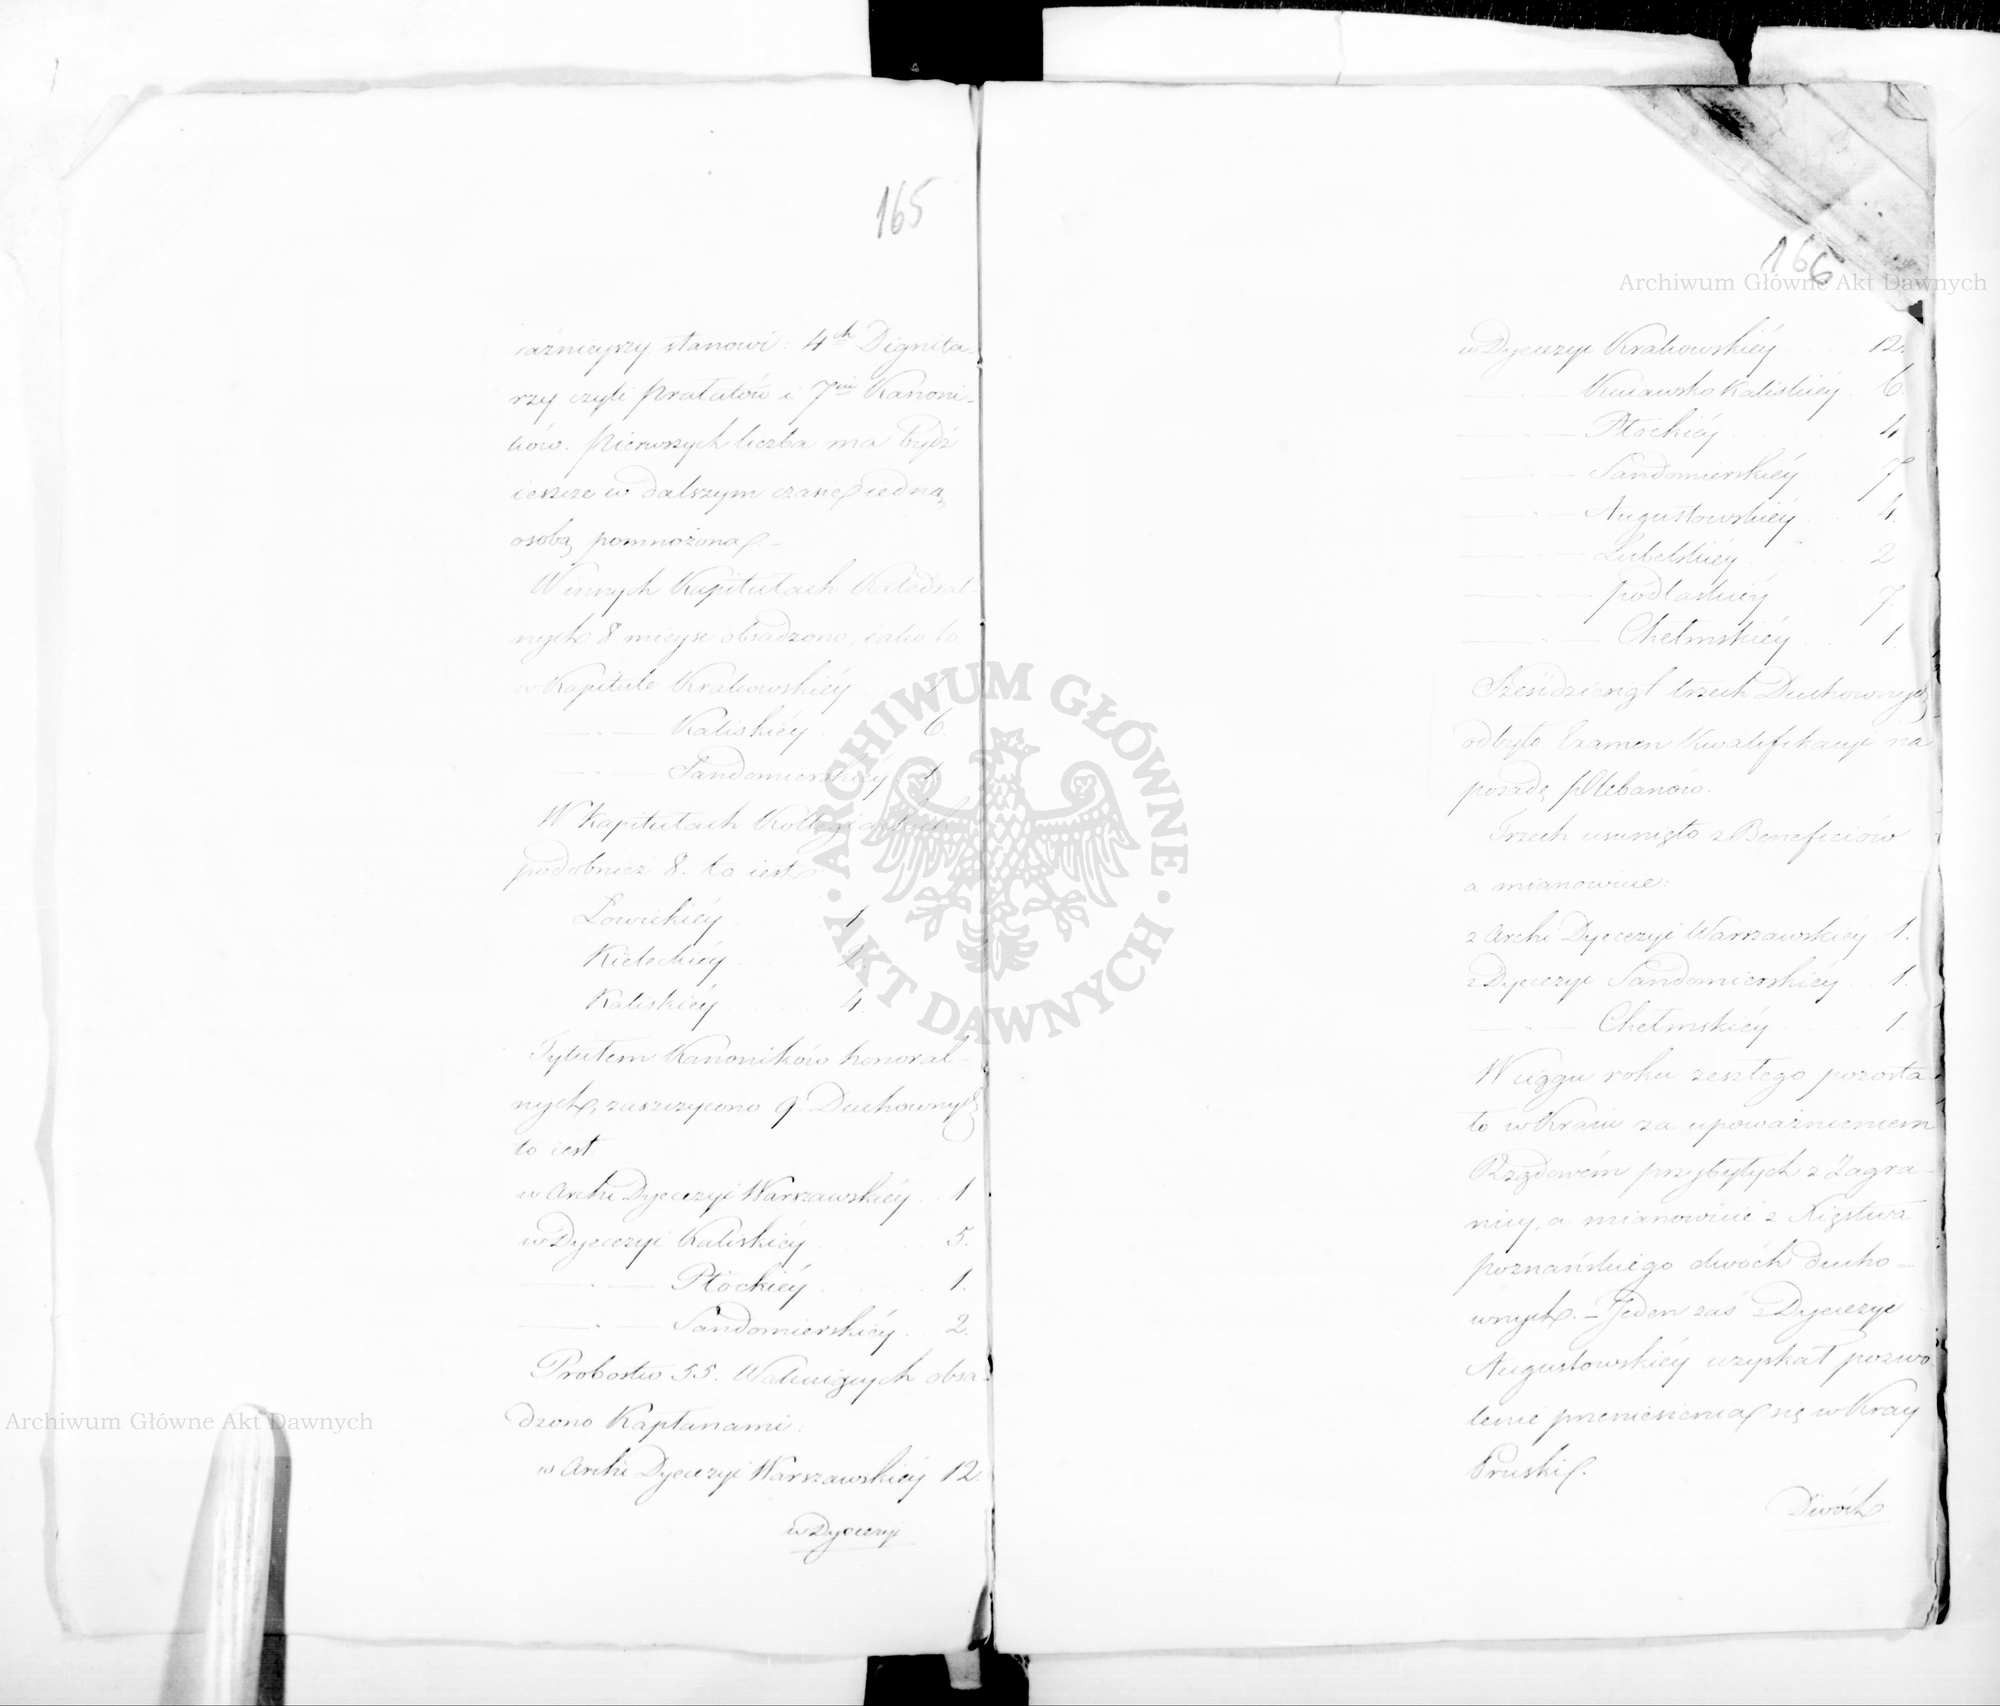 165
iaźnieyszy stanowi: 4ch Dignita-
rzy czyli Prałatów i 7miu Kanoni-
ków. Pierwszych liczba ma bydź
ieszcze w dalszym czasie iedną
osobą pomnożona. –
W innych Kapitułach Katedral-
nych 8 mieysc obsadzono, iako to
w Kapitule Krakowskiéy 1
— . — Kaliskiéy . 6.
— . — Sandomierskiéy 1
W Kapitułach Kollegialnych
podobnież 8. to iest:
Łowickiéy . 1
Kieleckiéy . 2.
Kaliskiéy . 4.
Tytułem Kanoników honoral-
nych, zaszczycono 9. Duchownych
to iest:
w Archi Dyecezyi Warszawskiéy . 1
w Dyecezyi Kaliskiéy . 5.
— . — Płockiéy . 1.
— . — Sandomierskiéy . 2.
Probostw 55. Wakuiących obsa-
dzono Kapłanami:
w Archi Dyecezyi Warszawskiéy 12.
w Dyecezyi
166
w Dyecezyi Krakowskiéy 12.
— . — Kuiawsko Kaliskiéy . 6.
— . — Płockiéy 4
— . — Sandomierskiéy 7
— . — Augustowskiéy 4.
— . — Lubelskiéy 2
— . — Podlaskiéy 7.
— . — Chełmskiéy 1.
Sześdziesiąt trzech Duchownych
odbyło Examen Kwalifikacyi na
posadę Plebanów.
Trzech usunięto z Beneficiów
a mianowicie:
z Archi Dyecezyi Warszawskiéy 1.
z Dyecezyi Sandomierskiéy . 1.
— . — Chełmskiéy 1
W ciągu roku zeszłego pozosta-
ło w Kraiu za upoważnieniem
Rządowém przybyłych z Zagra-
nicy, a mianowicie z Xięstwa
Poznańskiego dwóch ducho-
wnych. – Jeden zaś z Dyecezyi
Augustowskiéy uzyskał pozwo-
lenie przeniesienia się w Kray
Pruski.
Dwóch
Archiwum Główne Akt Dawnych
Archiwum Główne Akt Dawnych
ARCHIWUM GŁÓWNE
AKT DAWNYCH